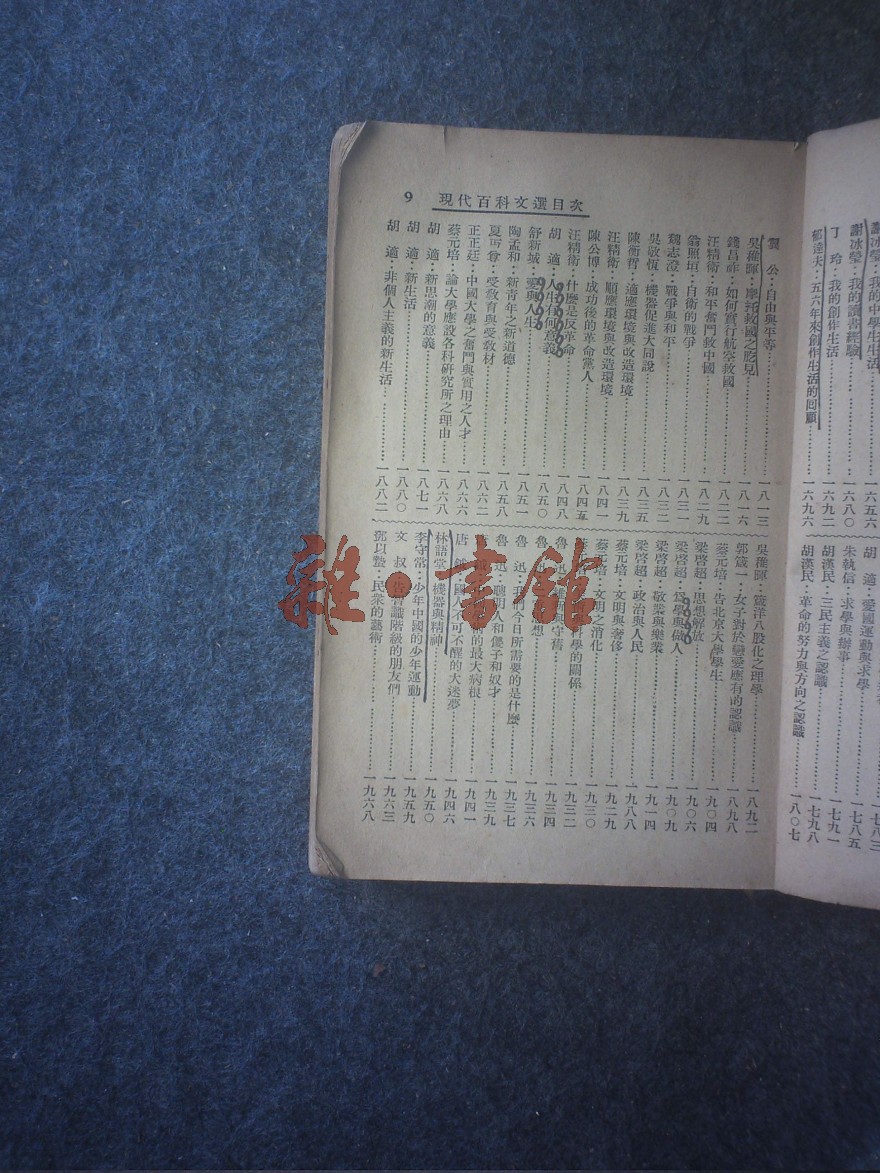 謝冰瑩：我的中學生生活……一六五六
謝冰瑩：我的讀書經驗……一六八〇
丁　玲：我的創作生活……一六九二
郁達夫：五六年來創作生活的回顧……一六九六
胡　適：愛國運動與求學……一七八三
朱執信：求學與辦事……一七八五
胡漢民：三民主義之認識……一七九一
胡漢民：革命的努力與方向之認識……一八〇七
9　現代百科文選目次
公：自由與平等……一八一三
吳稚暉：摩托救國之　見……一八一六
錢昌祚：如何實行航空救國……一八二二
汪精衛：和平奮鬥救中國……一八二九
翁照垣：自衛的戰爭……一八三一
魏志澄：戰爭與和平……一八三二
吳敬恆：機器促進大同說……一八三五
陳衡哲：適應環境與改造環境……一八三九
汪精衛：順應環境與改造環境……一八四一
陳公博：成功後的革命黨人……一八四五
汪精衛：什麼是反革命……一八四八
胡　適：人生有何意義……一八五〇
舒新城：愛與人生……一八五一
陶孟和：新青年之新道德……一八五八
夏丏尊：受教育與受教材……一八六二
王正廷：中國大學之奮鬥與實用之人才……一八六六
蔡元培：論大學應設各科研究所之理由……一八六八
胡　適：新思潮的意義……一八七一
胡　適：新生活……一八八〇
胡　適：非個人主義的新生活……一八八二
吳稚暉：箴洋八股化之理學……一八九二
郭箴一：女子對於戀愛應有的認識……一八九八
蔡元培：告北京大學學生……一九〇四
梁啓超：思想解放……一九〇六
梁啓超：爲學與做人……一九〇九
梁啓超：敬業與樂業……一九一四
：政治與人民……
蔡元培：文明與奢侈……一九二九
蔡元培：文明之消化……一九三〇
科學的關係……一九三二
與守舊……一九三四
魯　迅　想……一九三六
魯　迅：我們今日所需要的是什麼……一九三七
魯　迅：聰明人和傻子和奴才……一九三九
的最大病根……一九四一
唐　鉞：國人不可不醒的大迷夢……一九四六
林語堂：機器與精神……一九五〇
李守常：少年中國的少年運動……一九五九
文　叔：告智識階級的朋友們……一九六三
鄧以蟄：民衆的藝術……一九六八
雜·書館